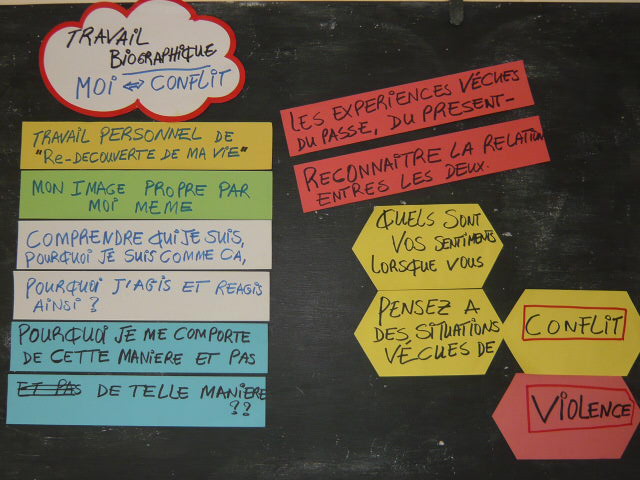 TRAVAIL
BIOGRAPHIQUE
MOI ⇔ CONFLIT
TRAVAIL PERSONNEL DE
"RE-DECOUVERTE DE MA VIE"
MON IMAGE PROPRE PAR
MOI MEME
COMPRENDRE QUI JE SUIS,
POURQUOI JE SUIS COMME CA,
POURQUOI J'AGIS ET REAGIS
AINSI ?
POURQUOI JE ME COMPORTE
DE CETTE MANIERE ET PAS
ET PAS DE TELLE MANIERE
??
LES EXPERIENCES VÉCUES
DU PASSE, DU PRESENT-
RECONNAÎTRE LA RELATION
ENTRES LES DEUX.
QUELS SONT
VOS SENTIMENTS
LORSQUE VOUS
PENSEZ A
DES SITUATIONS
VÉCUES DE
CONFLIT
VIOLENCE